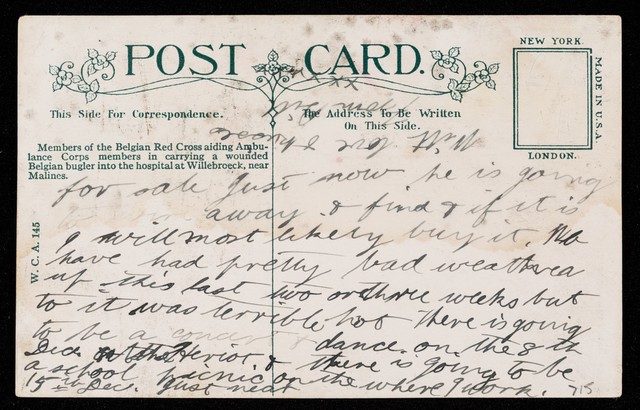 POST CARD.
NEW YORK.
MADE IN U.S.A
LONDON.
This Side For Correspondence.
The Address To Be Written
On This Side.
Members of the Belgian Red Cross aiding Ambu-
lance Corps members in carrying a wounded
Belgian bugler into the hospital at Willebroeck, near
Malines.
W. C. A. 145
xxxx
for sale just now he is going
away & find & if it is
I will most likely buy it. We
have had pretty bad weather
up this last two or three weeks but
to it was terrible hot there is going
to be a dance on the 8th
Dec. & there is going to be
a school picnic on the
15th Dec. just near where I work.